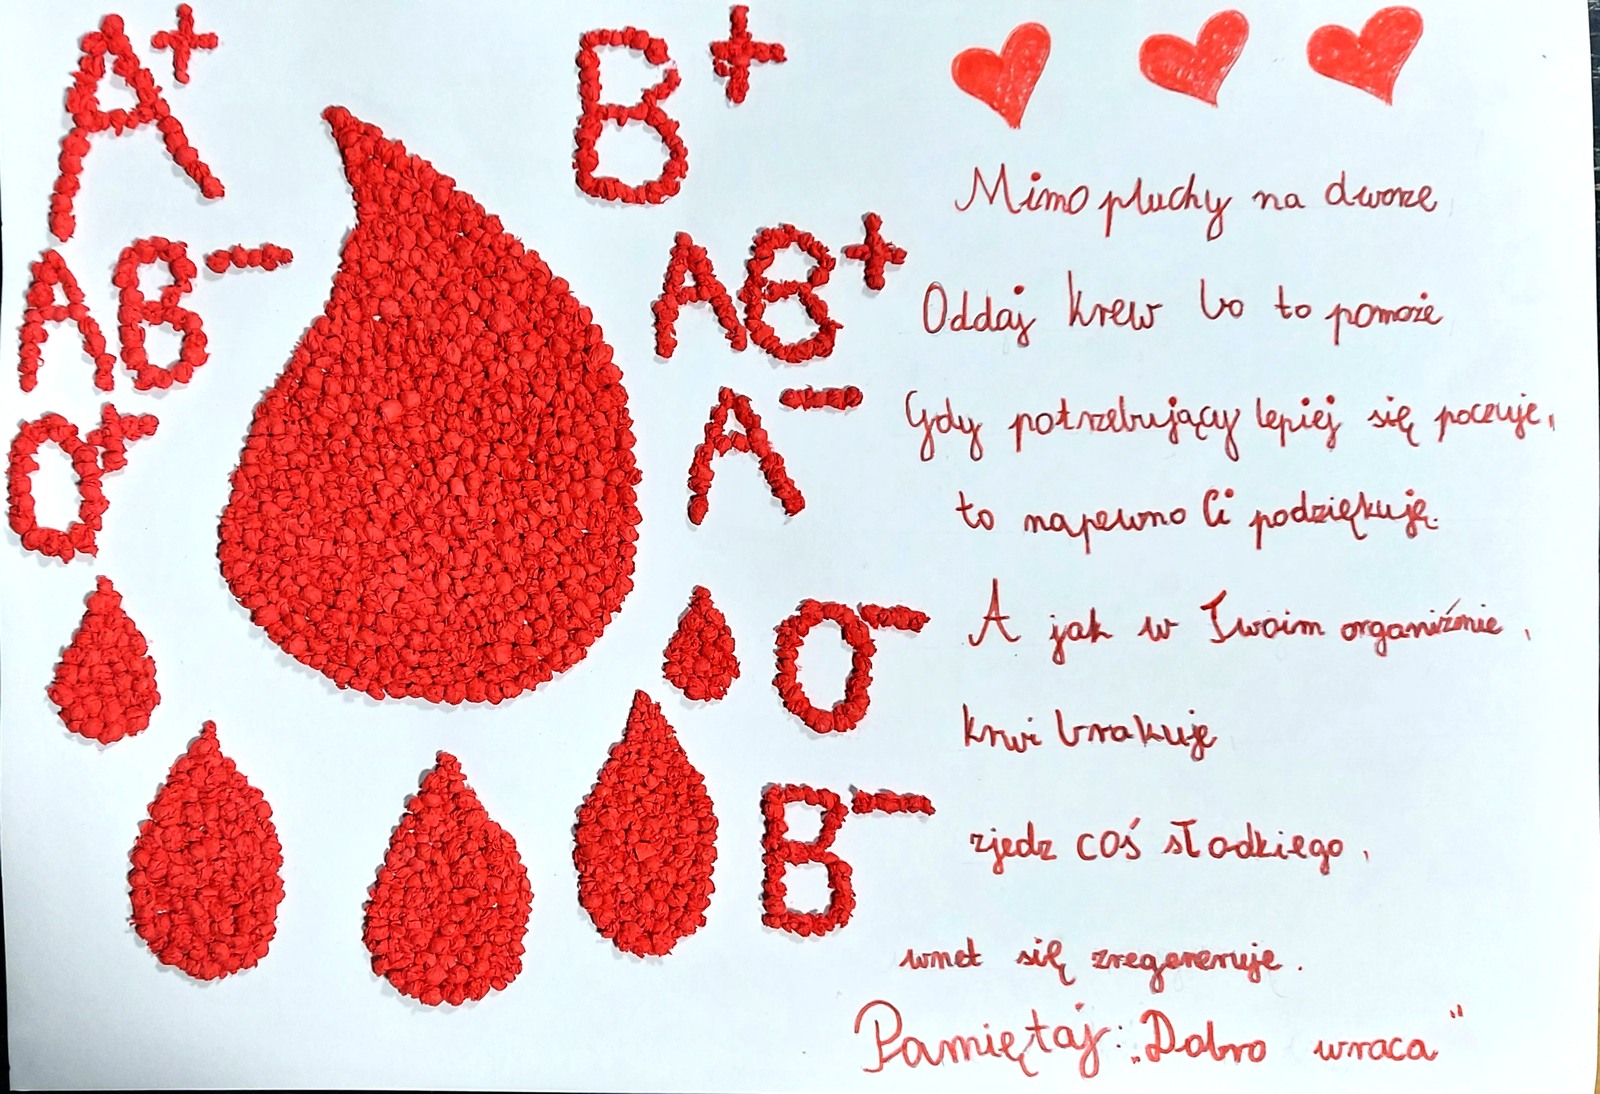 A+
B+
AB-
AB+
O+
A-
O-
B-
Mimo pluchy na dworze
Oddaj krew bo to pomoże
Gdy potrzebujący lepiej się poczuje,
to napewno Ci podziękuję.
A jak w Twoim organiźmie,
krwi brakuje
zjedz coś słodkiego,
wnet się zregeneruje.
Pamiętaj: „Dobro wraca"